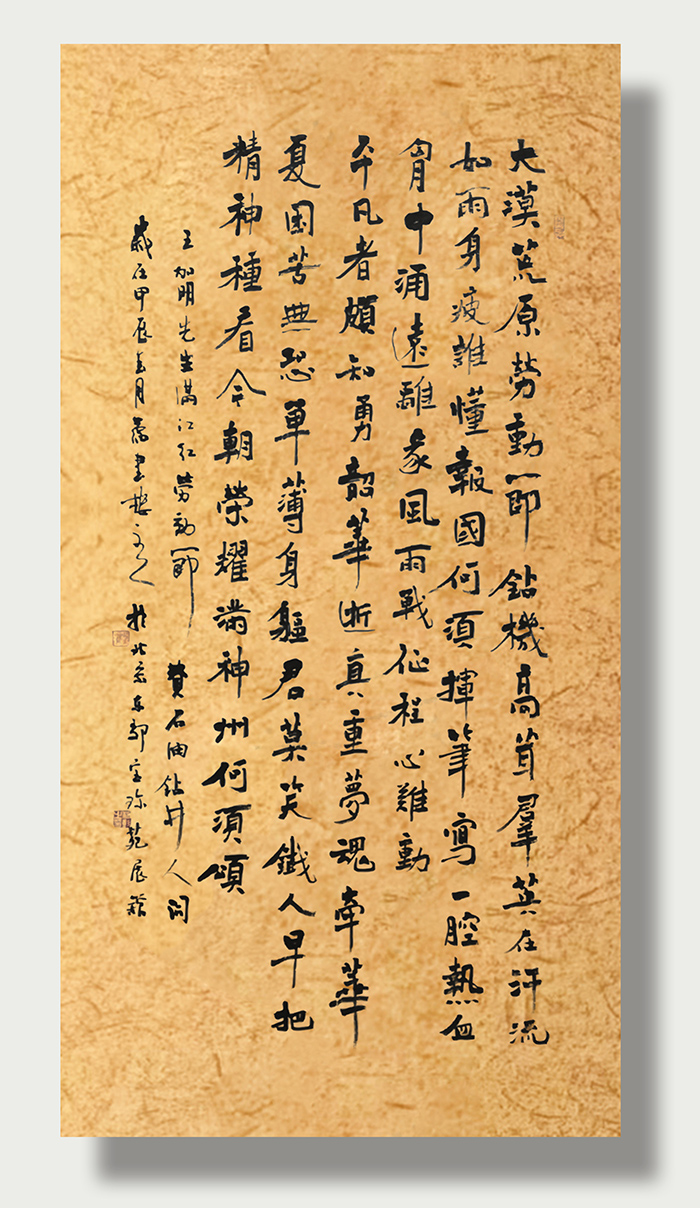 大漠荒原勞動節鉆機高聳羣英在汗流
如雨身疲誰懂報國何須揮筆寫一腔熱血
胷中涌遠離家風雨戰征程心難動
平凡者頗知勇韶華逝真重夢魂牽華
夏困苦無恐單薄身軀君莫笑鐵人早把
精神種看今朝榮耀滿神州何須頌
王加明先生滿江红勞動節 贊石油鉆井人词
歲在甲辰玄月舊書樓主人 於北京東部宝珍苑展